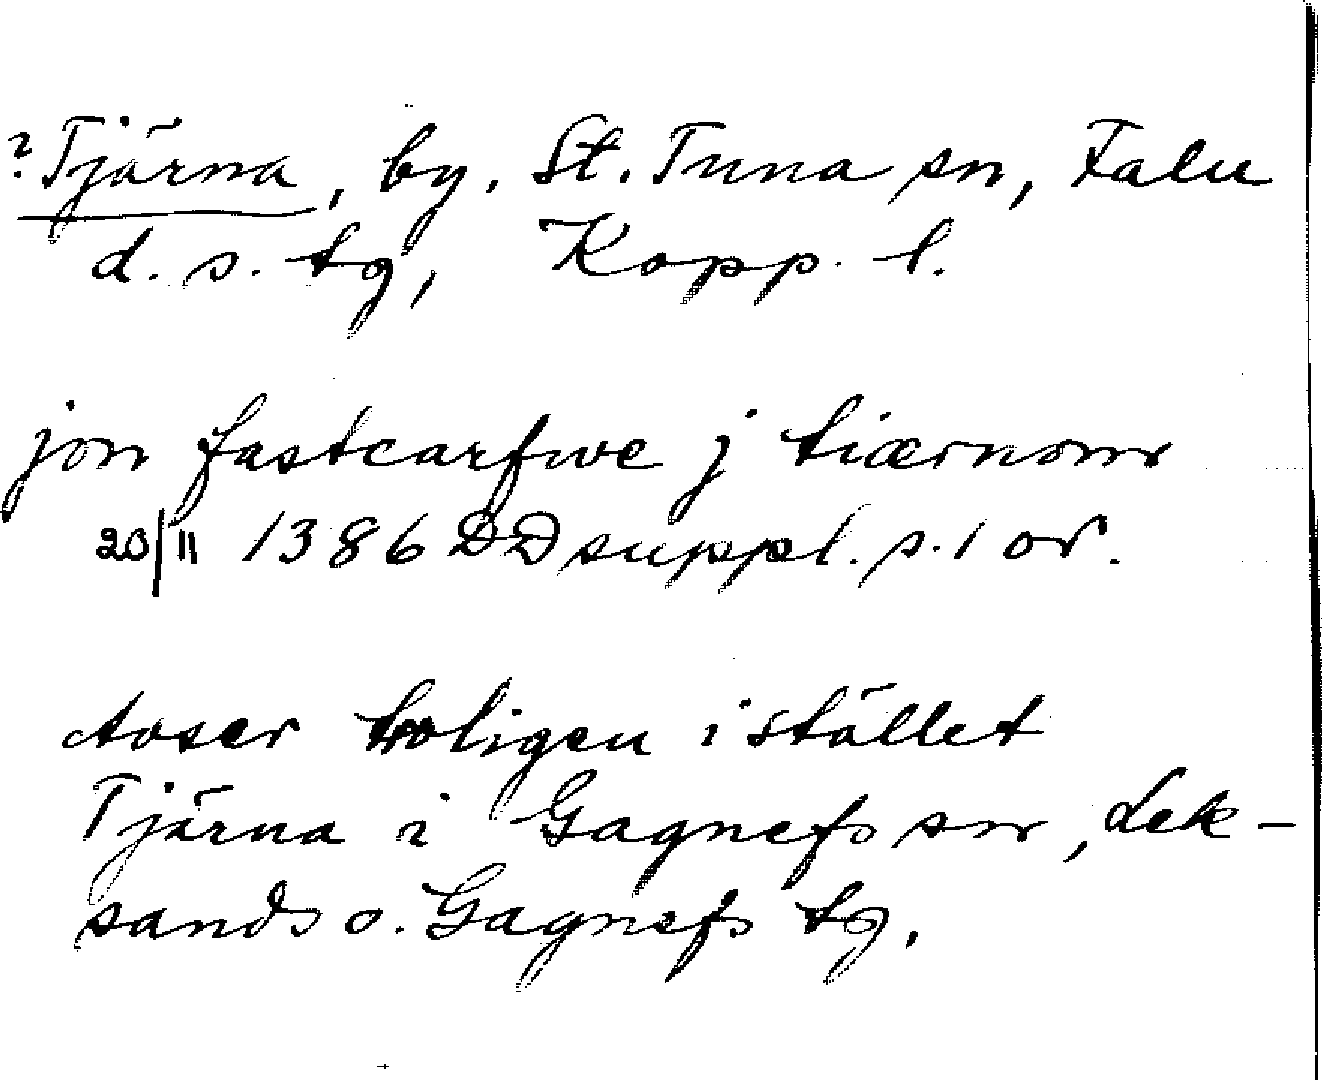 ? Tjärna, by, St. Tuna sn, Falu
d. s. tg, Kopp. l.
jon fastearfwe j tiærnom
20/11 1386 DD suppl. s. 1 or.
Avser troligen i stället
Tjärna i Gagnefs sn, Lek-
sands o. Gagnefs tg.